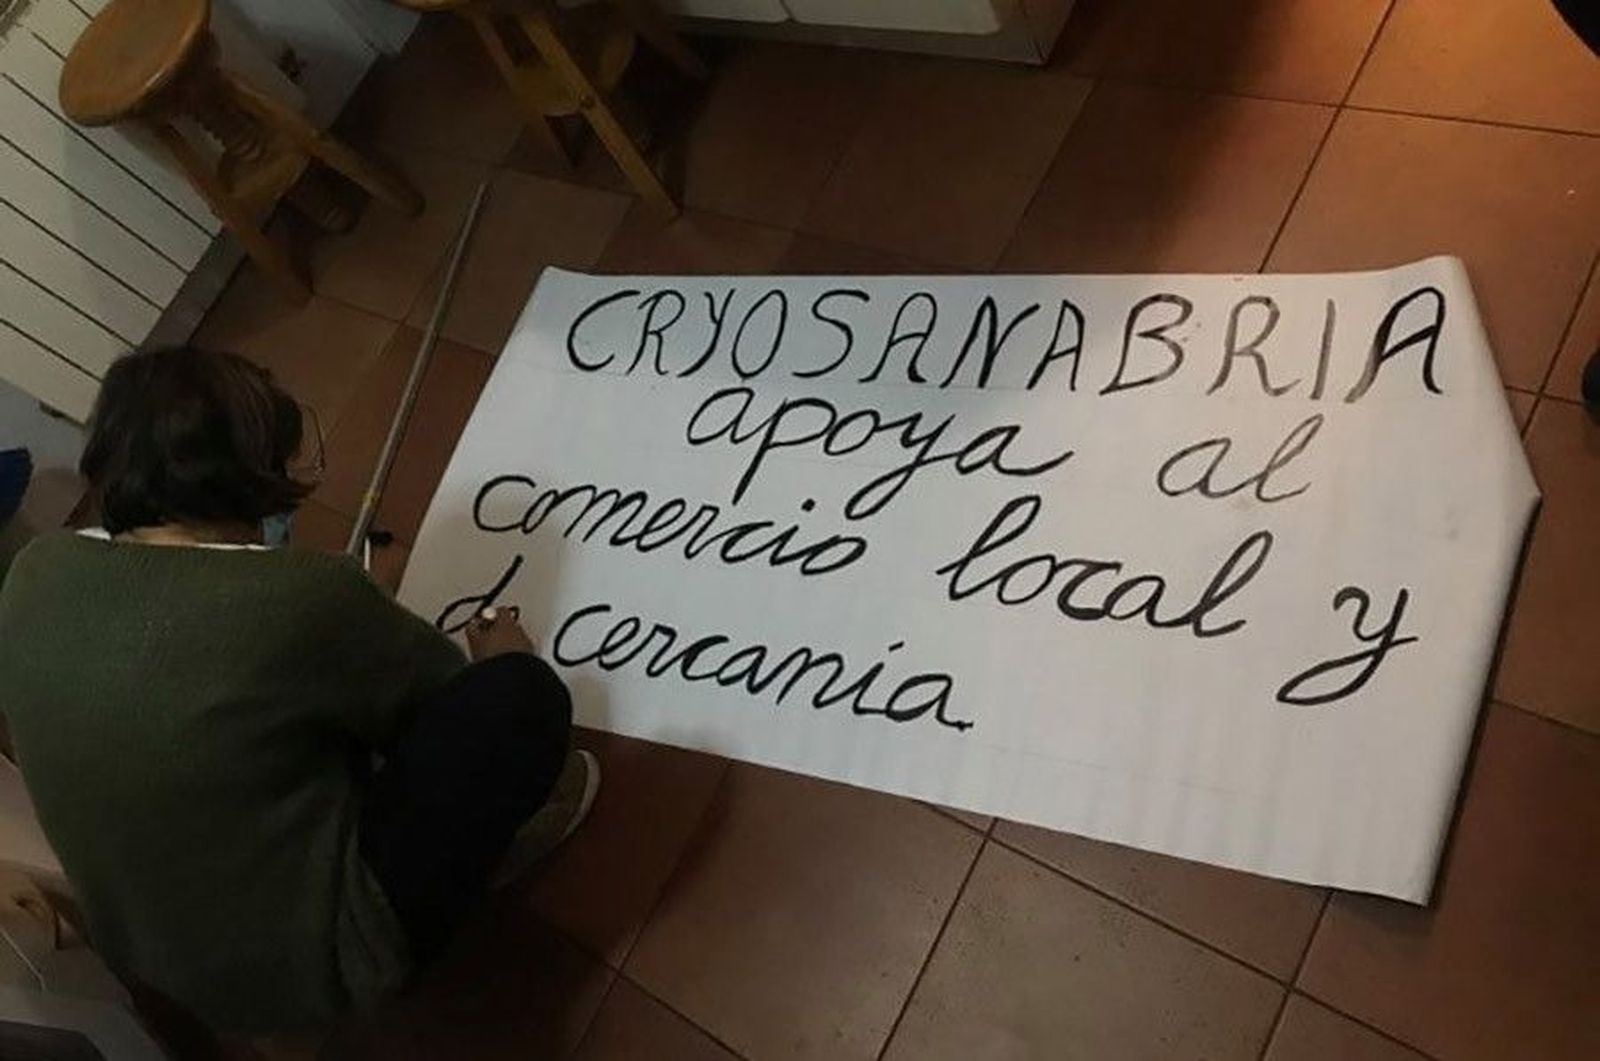 CRYOSANABRIA
apoya al
comercio local y
d cercanía.